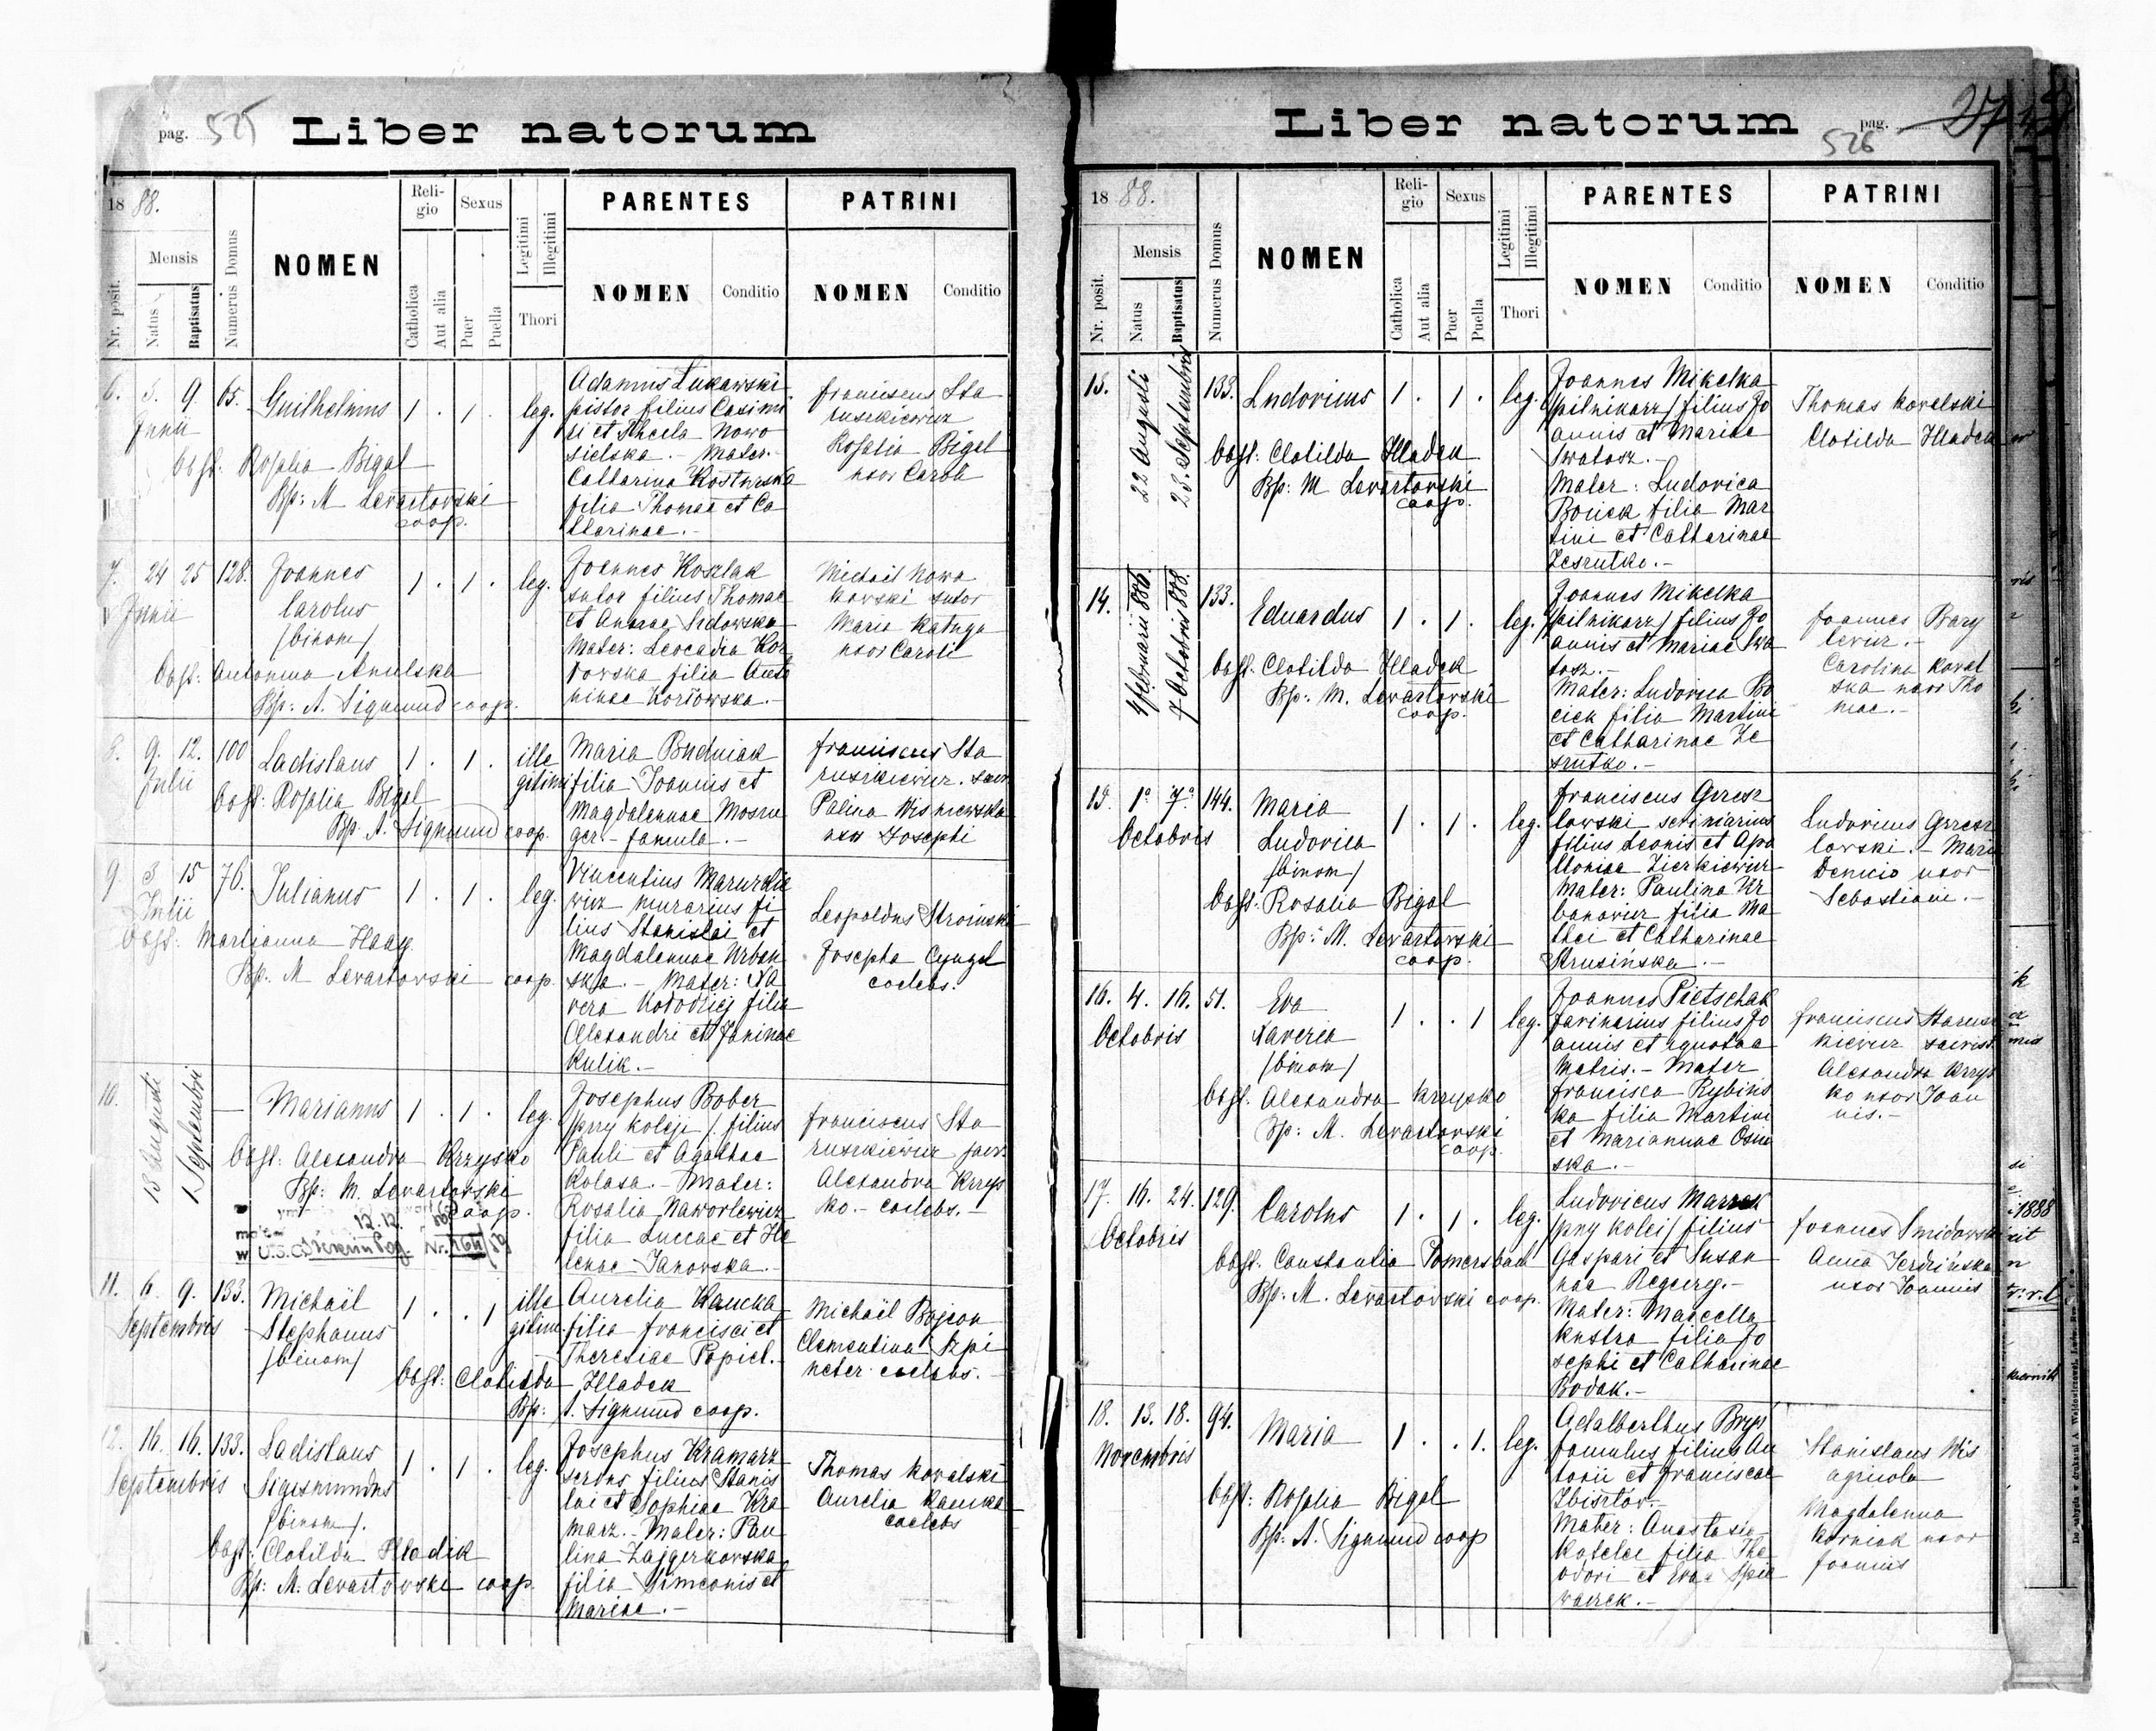 pag. 525 Liber natorum
1888.
Nr. posit.
Mensis
Natus
Baptisatus
Numerus Domus
NOMEN
Reli-
gio
Catholica
Aut alia
Sexus
Puer
Puella
Legitimi
Illegitimi
Thori
PARENTES
NOMEN Conditio
PATRINI
NOMEN Conditio
6. 3. 9. 65. Guilhelmus 1 . 1 . leg.
Junii
Obst. Rosalia Bigel
Bp: M Levartovski
coop.
Adamus Lukawski
pistor filius Casimi
ri et Thecla Nowo
sielska. - Mater.
Catharina
filia Thomae et Ca
tharinae. -
Franciscus Sta
ruszkiewicz
Rosalia Bigel
uxor Caroli
7. 24 25 128. Joannes 1 . 1 . leg.
Junii
Carolus
/binom/
Obst. Antonina
Bp: A. Sigmund coop.
Joannes Koszlak
sutor filius Thomae
et Annae Sidowska
Mater: Leocadia Kor
sovska filia Anto
ninae
Michael Nowa
kowski sutor
Maria Katuga
uxor Caroli
8. 9. 12. 100 Ladislaus 1 . 1 . ille
gitimi
Julii
Obst: Rosalia Bigel
Bp: A. Sigmund coop.
Maria Budniak
filia Joannis et
Magdalenae Mosru
ger. - famula. -
Franciscus Sta
ruszkiewicz.
Palina Wisniewska
uxor Josephi
9. 3 15 76. Julianus 1 . 1 . leg.
Julii
Obst. Marianna Haag
Bp. M Levartovski coop.
Vincentius Marurkie
wicz murarius fi
lius Stanislai et
Magdalenae Urban
ska. - Mater: Xa
vera Kołodziej filia
Alexandri et Janinae
Kulik. -
Leopoldus Stroinski
Josepha Cyngel
coelebs.
10. 13 Augusti 1. Septembri — Marianus 1 . 1 . leg.
Obst: Alexandra Krzysko
Bp: M. Levartovski
coop.
12.12.
Josephus Bober
/przy koleji/ filius
Pauli et Agathae
Kolasa. - Mater:
Rosalia Naworlewicz
filia Luccae et He
lenae Janowska. -
Franciscus Sta
ruszkiewicz
Alexandra Krzys
ko. - coelebs. -
11. 6. 9. 133. Michaël 1 . . 1 ille
gitimi
Septembris
Stephanus
/binom/
Obst: Clotilda Hladek
Bp: A. Sigmund coop.
Aurelia Kaucka
filia Francisci et
Theresiae Popiel. -
Michaël Bojcon
Clementina Szpi
neter coelebs. -
12. 16. 16. 133. Ladislaus 1 . 1 . leg.
Septembris
Sigismundus
/binom/.
Obst: Clotilda Hladik
Bp: M. Levartovski coop.
Josephus Kramarz
filius Stanis
lai et Sophiae Kra
marz. - Mater: Pau
lina Zajgerkovska
filia Simeonis et
Mariae. -
Thomas Kovalski
Aurelia Kaucka
coelebs
Liber natorum pag. 27
526
1888.
Nr. posit.
Mensis
Natus
Baptisatus
Numerus Domus
NOMEN
Reli-
gio
Catholica
Aut alia
Sexus
Puer
Puella
Legitimi
Illegitimi
Thori
PARENTES
NOMEN Conditio
PATRINI
NOMEN Conditio
13. 22 Augusti 23. Septembris 133. Ludovicus 1 . 1 . leg.
Obst: Clotilda Hladek
Bp: M Levartovski
coop.
Joannes Mikelka
/pilnikarz/ filius Jo
annis et Mariae
Swatosz. -
Mater: Ludovica
Boucek filia Mar
tini et Catharinae
Zesrutko. -
Thomas Kovalski
Clotilda Hladek
14. 1 Februarii 886. 7 Octobris 888. 133. Eduardus 1 . 1 . leg.
Obst. Clotilda Hladek
Bp: M. Levartovski
coop.
Joannes Mikelka
/pilnikarz/ filius Jo
annis et Mariae Swa
tosz. -
Mater: Ludovica Bo
cick filia Martini
et Catharinae Ze
srutko. -
Joannes Bary
levicz. -
Carolina Koval
ska uxor Tho
mae. -
15. 1a 7a 144. Maria 1 . 1 . leg.
Octobris
Ludovica
/binom/
Obst. Rosalia Bigel
Bp: M. Levartovski
coop.
Franciscus Grzesz
lowski scriniarius
filius Leonis et Apo
lloniae Zierkiewicz
Mater: Paulina Ur
banovicz filia Ma
thei et Catharinae
Strusińska. -
Ludovicus Grzesz
lovski. - Maria
Denicio uxor
Sebastiani. -
16. 4. 16. 51. Eva 1 . . 1 leg.
Octobris
Xaveria
/binom/
Obst. Alexandra Krzysko
Bp: M. Levartovski
coop.
Joannes Pietschak
farinarius filius Jo
annis et ignotae
Matris. - Mater
Francisca Rybins
ka filia Martini
et Mariannae Osin
ska. -
Franciscus Starusz
kievicz
Alexandra Krzys
ko uxor Joan
nis. -
17. 16. 24. 129. Carolus 1 . 1 . leg.
Octobris
Obst. Constantia Pomersbach
Bp: M. Levartovski coop.
Ludovicus Marzek
/przy kolei/ filius
Gaspari et Susan
nae Regeery. -
Mater: Marcella
Kustra filia Jo
sephi et Catharinae
Bodak. -
Joannes Smidowski
Anna Jerdzińska
uxor Joannis
18. 13. 18. 94. Maria 1 . . 1. leg.
Novembris
Obst: Rosalia Bigel
Bp: A. Sigmund coop
Adalberthus Bryś
famulus filius An
tonii et Franciscae
Zbisztów. -
Mater: Anastasia
Katelei filia The
odori et Evae Spie
waczek. -
Stanislaus Wis
agricola
Magdalenna
Korniak uxor
Joannis
1888